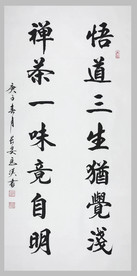 悟道三生猶覺淺
禅茶一味竟自明
庚子春月